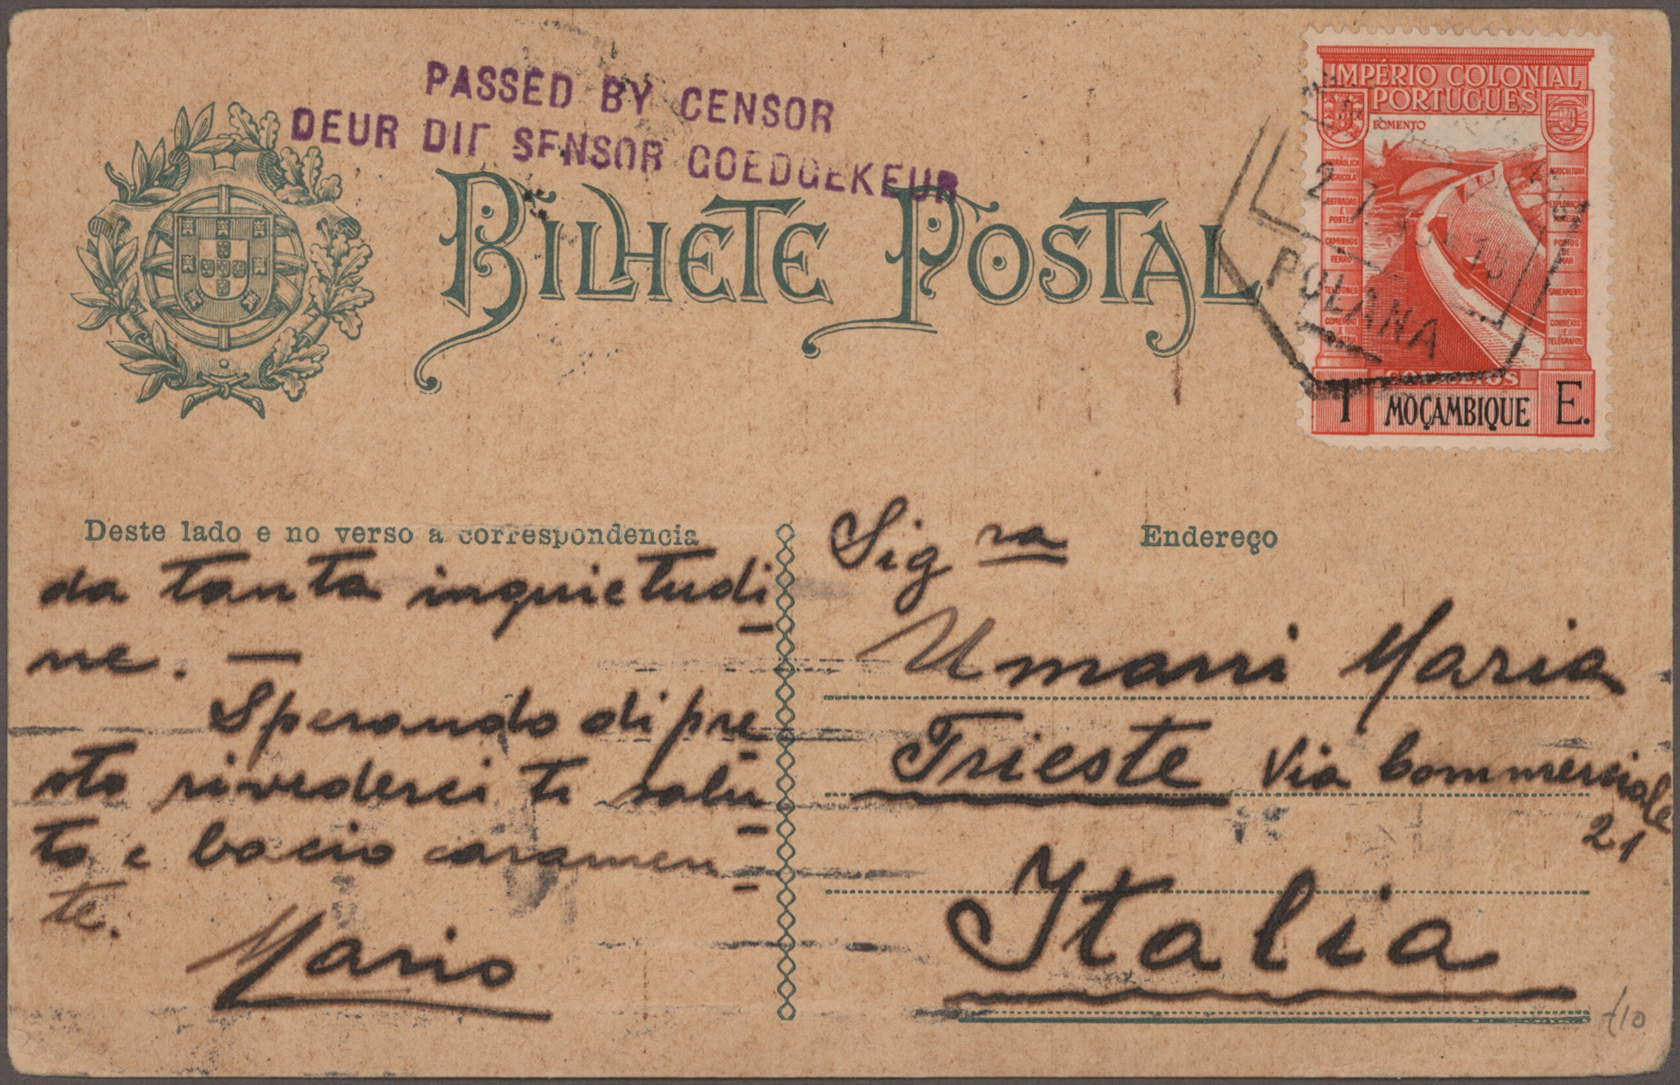 PASSED BY CENSOR
DEUR DIE SENSOR GOEDGEKEUR
BILHETE POSTAL
IMPÉRIO COLONIAL
PORTUGUÊS
FOMENTO
POLANA
CORREIOS
1 MOÇAMBIQUE E.
Deste lado e no verso a correspondencia
Endereço
da tanta inquietudi
ne. —
Sperando di pre
sto rivederci ti salu
to e bacio caramen
te.
Mario
Sig ra
Umarri Maria
Trieste Via Commerciale
21
Italia